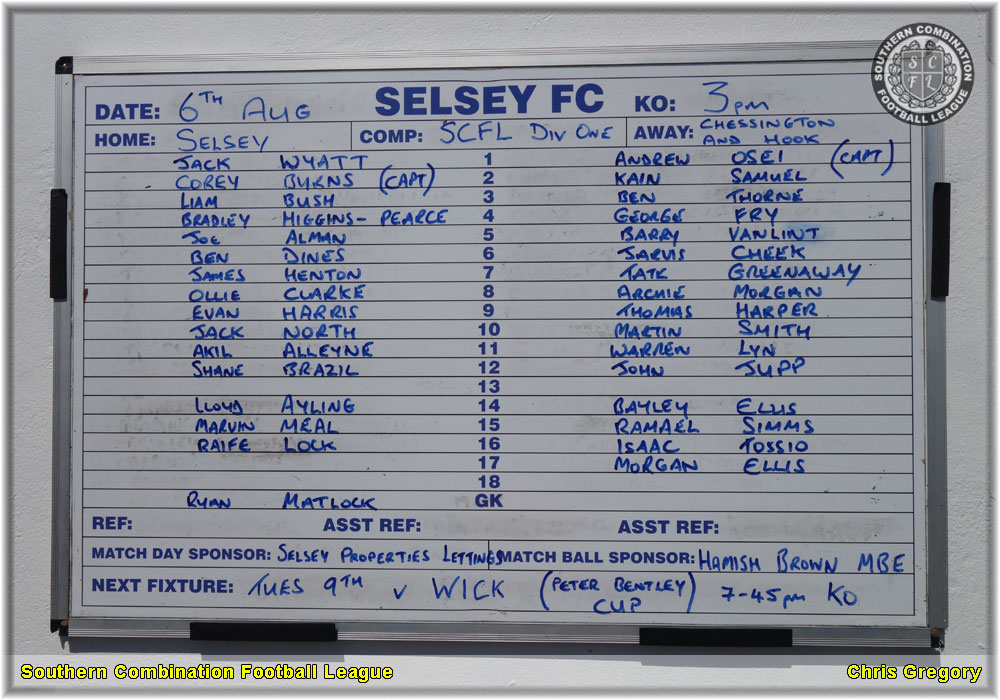 SOUTHERN COMBINATION FOOTBALL LEAGUE
SCFL
DATE: 6TH AUG SELSEY FC KO: 3pm
HOME: SELSEY COMP: SCFL DIV ONE AWAY: CHESSINGTON AND HOOK
JACK WYATT 1 ANDREW OSEI (CAPT)
COREY BURNS (CAPT) 2 KAIN SAMUEL
LIAM BUSH 3 BEN THORNE
BRADLEY HIGGINS-PEARCE 4 GEORGE FRY
JOE ALMAN 5 BARRY VANLINT
BEN DINES 6 JARVIS CHEEK
JAMES HENTON 7 TATE GREENAWAY
OLLIE CLARKE 8 ARCHIE MORGAN
EVAN HARRIS 9 THOMAS HARPER
JACK NORTH 10 MARTIN SMITH
AKIL ALLEYNE 11 WARREN LYN
SHANE BRAZIL 12 JOHN JUPP
13
LLOYD AYLING 14 BAYLEY ELLIS
MARVIN MEAL 15 RAMAEL SIMMS
RAIFE LOCK 16 ISAAC TOSSIO
17 MORGAN ELLIS
18
RYAN MATLOCK GK
REF: ASST REF: ASST REF:
MATCH DAY SPONSOR: SELSEY PROPERTIES LETTINGS MATCH BALL SPONSOR: HAMISH BROWN MBE
NEXT FIXTURE: TUES 9TH v WICK (PETER BENTLEY CUP) 7-45pm KO
Southern Combination Football League Chris Gregory